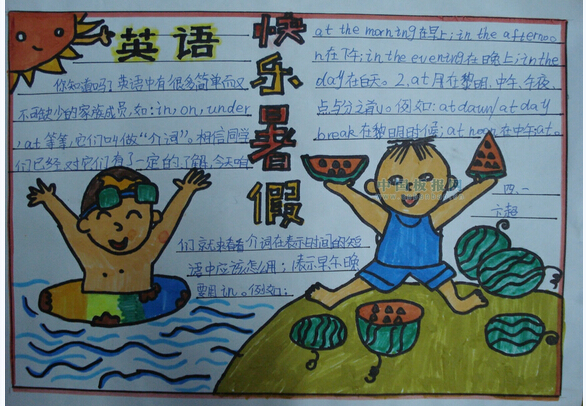 英语
快乐暑假
你知道吗?英语中有很多简单而又
不可缺少的家族成员,如:in,on,under
,at等等,它们叫做“介词”。相信同学
们已经对它们有了一定的了解,今天咱
们就来看看介词在表示时间的短
语中应该怎么用:1表示早午晚
要用in。例如:
at the morning在早上;in the afternoo
n在下午;in the evening在晚上;in the
day在白天。2.at用在黎明、中午、午夜、
点与分之前。例如:at dawn/at day
break在黎明时候;at noon在中午at。
中国板报网
四.一